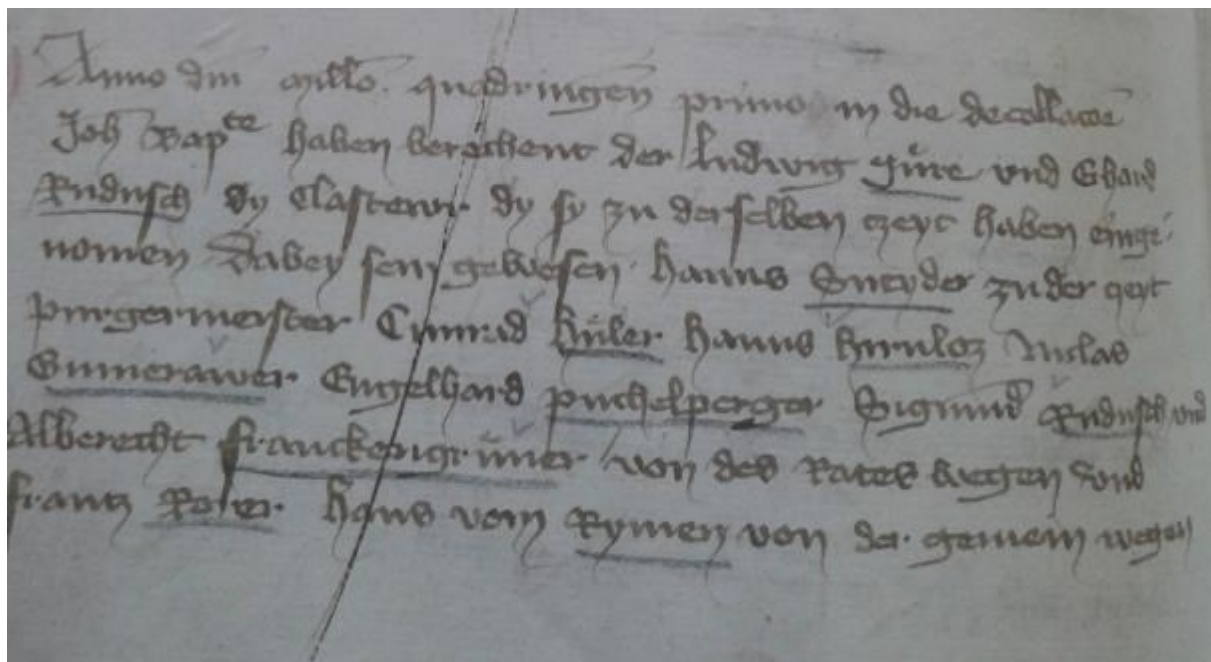 Anno dm millo. quadringen primo in die decollacoe
Joh Bapte haben berechent der Ludwig Jüre und Ehard
Rudusch dy Clastewr dy sy zu derselben czeyt haben einge
nomen Dabey sein gewesen Hanns Sneyder zu der zeyt
purgermeister Cunrad Hüler Hanns Hirnloz Niclas
Sumerawer Engelhard puchelperger Sigmund Rudusch und
Alberecht franckengrüner von des Rates wegen und
frantz Roter Hans vom Rymen von der gemein wegen